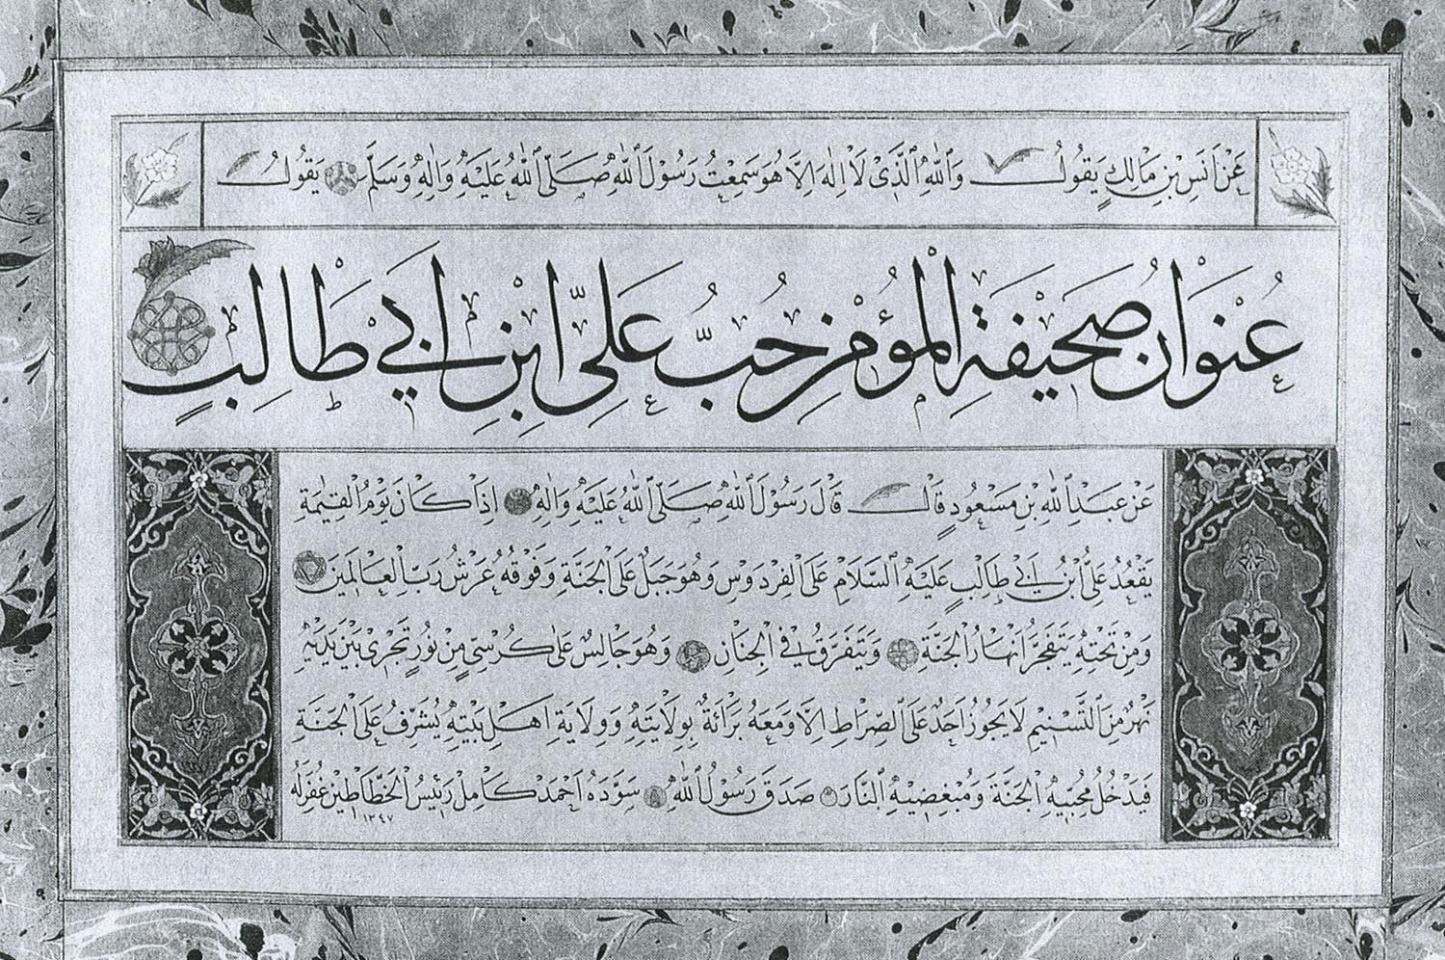 عَنْ اَنَسِ بْنِ مَالِكٍ يَقُولُ وَاللّٰهِ الَّذِى لَا اِلٰهَ اِلَّا هُوَ سَمِعْتُ رَسُولَ اللّٰهِ صَلَّى اللّٰهُ عَلَيْهِ وَاٰلِهِ وَسَلَّمَ يَقُولُ
عُنْوَانُ صَحِيفَةِ الْمُؤْمِنِ حُبُّ عَلِيِّ ابْنِ اَبِي طَالِبٍ
عَنْ عَبْدِ اللّٰهِ بْنِ مَسْعُودٍ قَالَ قَالَ رَسُولُ اللّٰهِ صَلَّى اللّٰهُ عَلَيْهِ وَاٰلِهِ اِذَا كَانَ يَوْمُ الْقِيٰمَةِ
يَقْعُدُ عَلِىُّ ابْنُ اَبِي طَالِبٍ عَلَيْهِ السَّلَامُ عَلَى الْفِرْدَوْسِ وَهُوَ جَبَلٌ عَلَى الْجَنَّةِ وَفَوْقَهُ عَرْشُ رَبِّ الْعَالَمِينَ
وَمِنْ تَحْتِهِ يَتَفَجَّرُ اَنْهَارُ الْجَنَّةِ وَيَتَفَرَّقُ فِي الْجِنَانِ وَهُوَ جَالِسٌ عَلَى كُرْسِيٍّ مِنْ نُورٍ تَجْرِى بَيْنَ يَدَيْهِ
نَهْرٌ مِنَ التَّسْنِيمِ لَا يَجُوزُ اَحَدٌ عَلَى الصِّرَاطِ اِلَّا وَمَعَهُ بَرَائَةٌ بِوِلَايَتِهِ وَوِلَايَةِ اَهْلِ بَيْتِهِ يُشَرِّفُ عَلَى الْجَنَّةِ
فَيَدْخُلُ مُحِبِّيهِ الْجَنَّةَ وَمُبْغِضِيهِ النَّارَ صَدَقَ رَسُولُ اللّٰهِ سَوَّدَهُ اَحْمَدْ كَامِلْ رَئِيسُ الْخَطَّاطِينَ غُفِرَ لَهُ
١٣٤٧